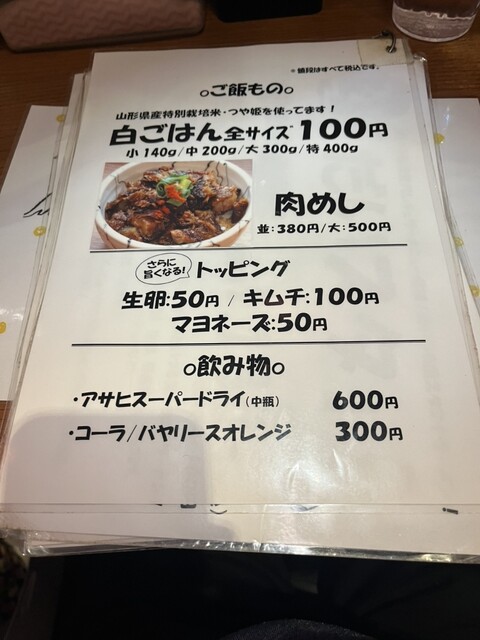 ※値段はすべて税込です。
○ご飯もの○
山形県産特別栽培米・つや姫を使ってます！
白ごはん全サイズ 100円
小140g/中200g/大300g/特400g
肉めし
並：380円/大：500円
さらに
旨くなる！
トッピング
生卵：50円 / キムチ：100円
マヨネーズ：50円
○飲み物○
・アサヒスーパードライ（中瓶） 600円
・コーラ/バヤリースオレンジ 300円